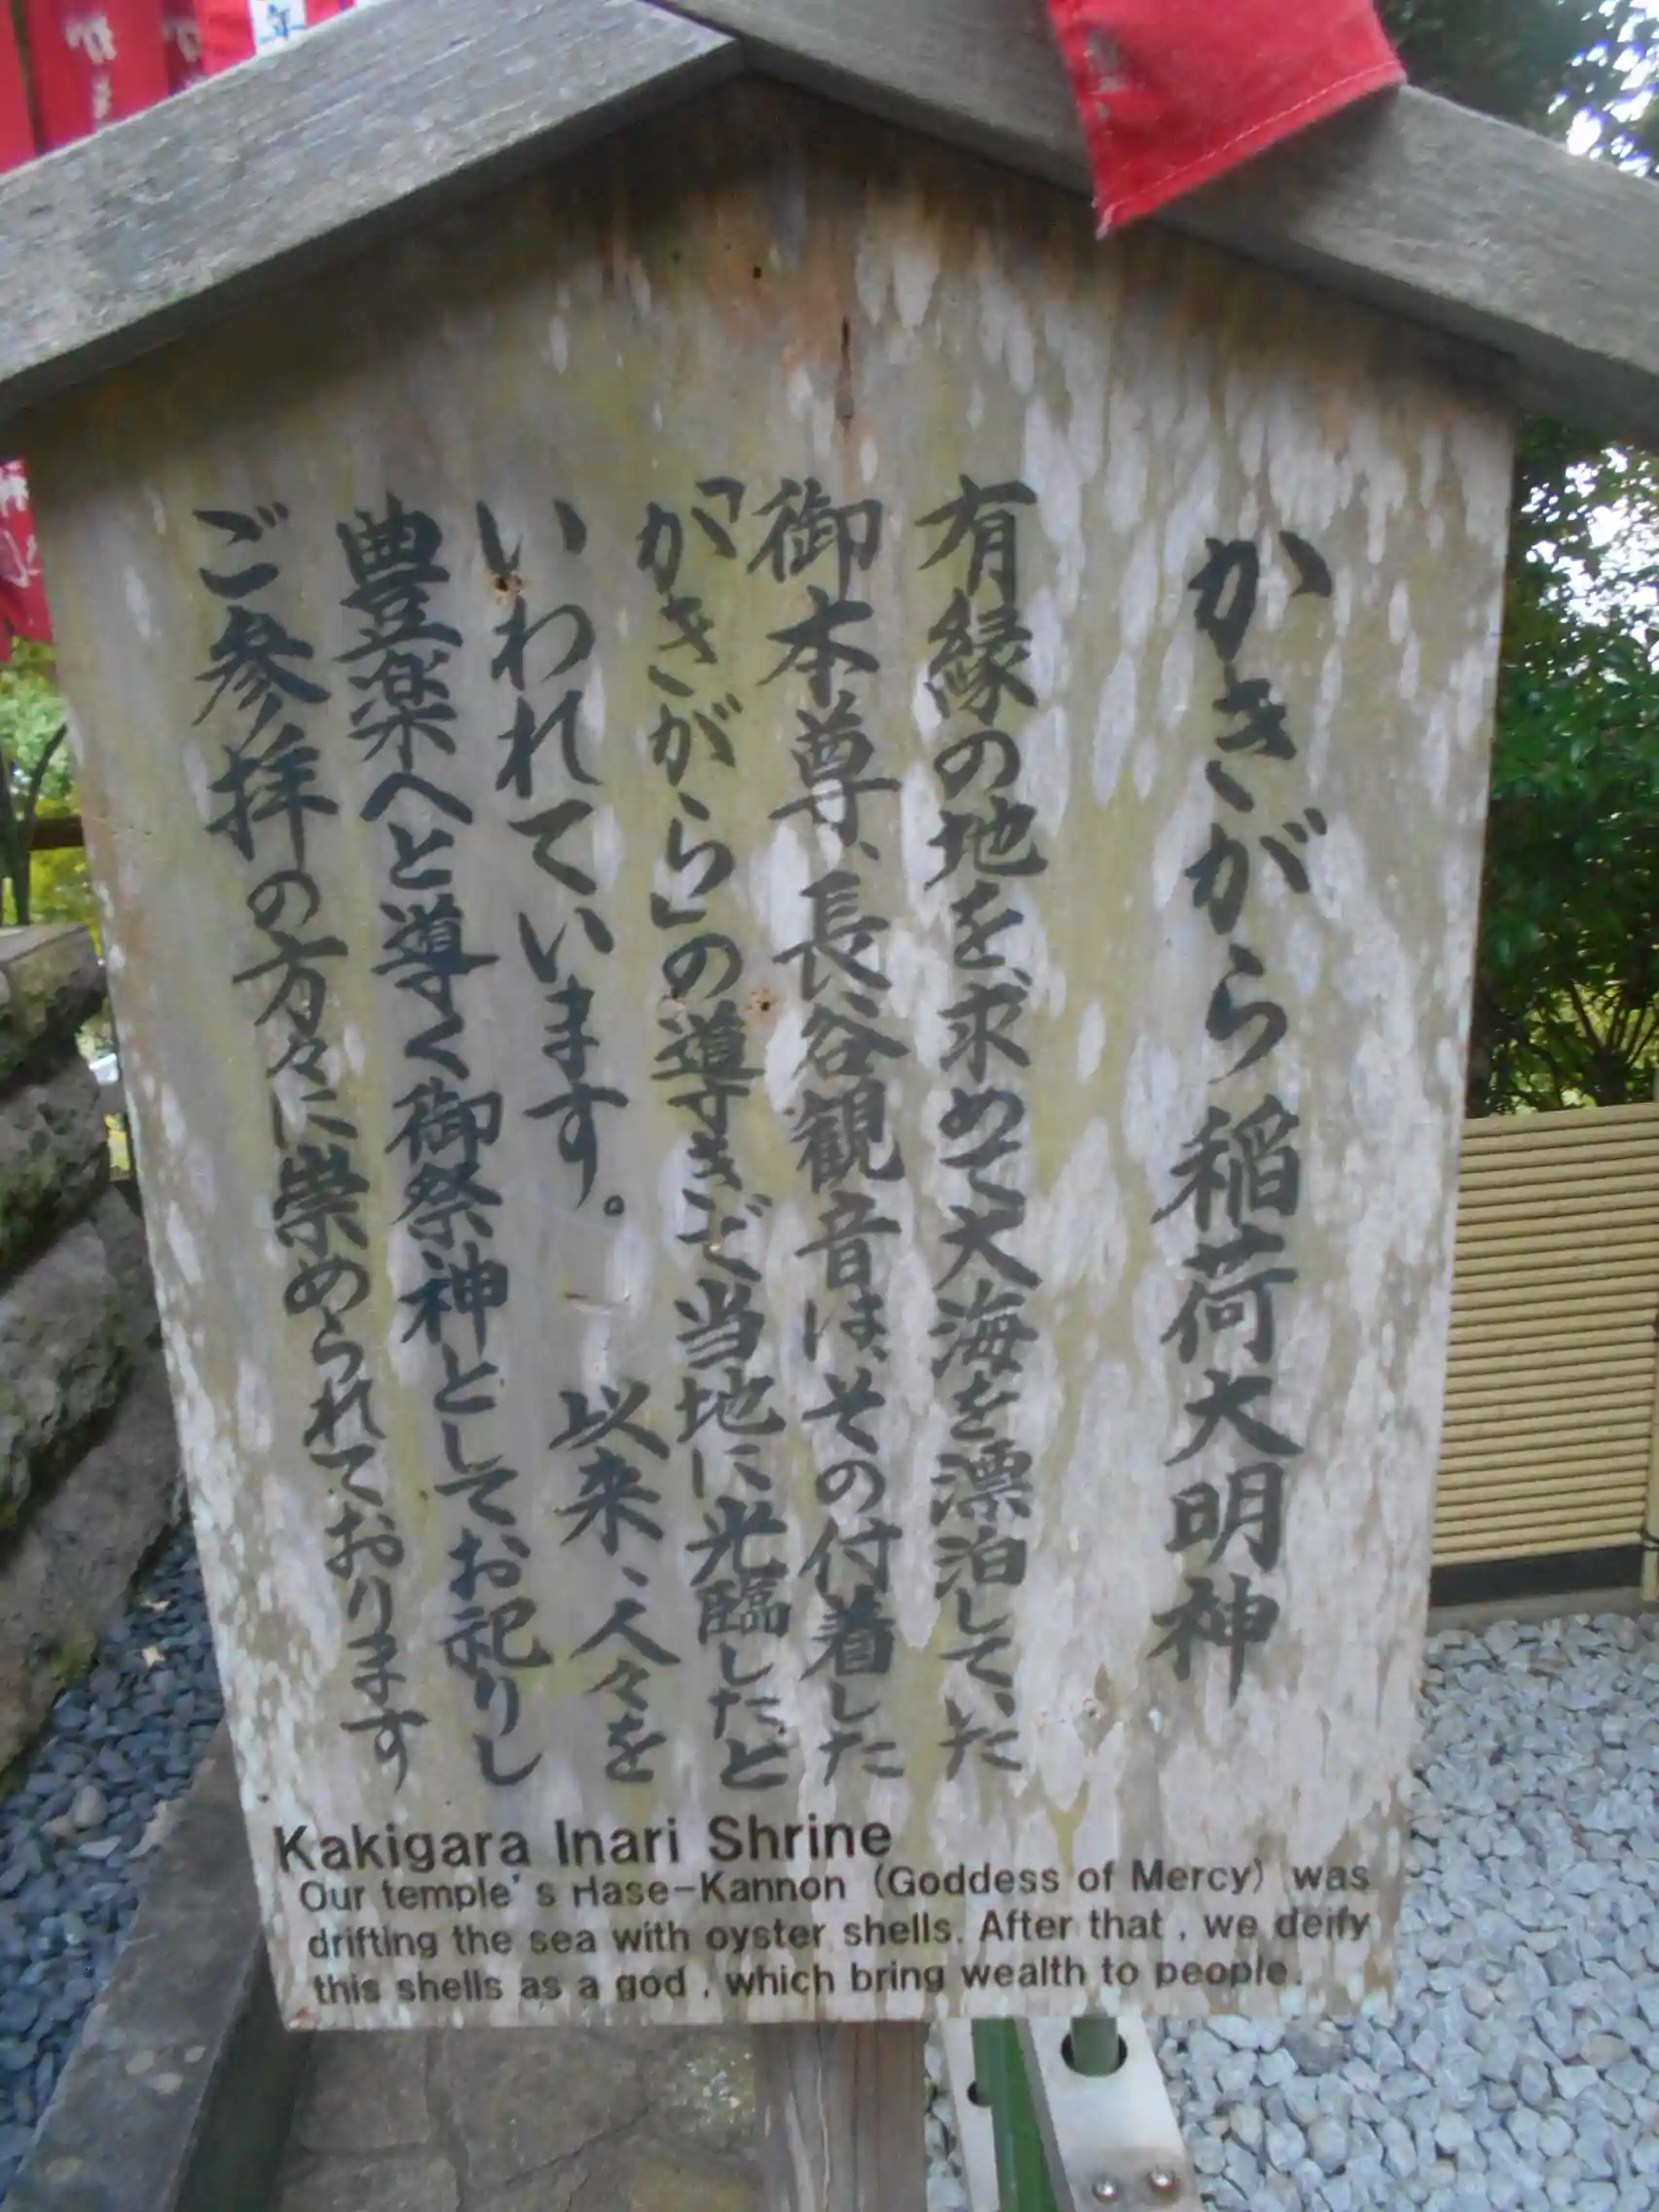 かきがら稲荷大明神
有縁の地を求めて大海を漂泊していた
御本尊、長谷観音は、その付着した
「かきがら」の導きで当地に光臨したと
いわれています。以来、人々を
豊楽へと導く御祭神としてお祀りし
ご参拝の方々に崇められております
Kakigara Inari Shrine
Our temple's Hase-Kannon (Goddess of Mercy) was
drifting the sea with oyster shells. After that , we deify
this shells as a god , which bring wealth to people.
年